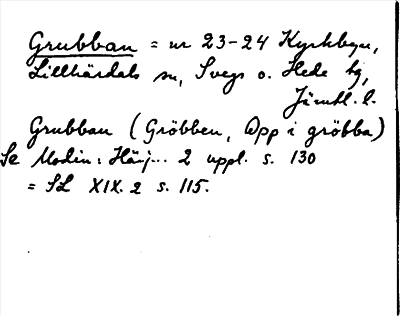 Grubban = nr 23-24 Kyrkbyn,
Lillhärdals sn, Svegs o. Hede tg,
Jämtl. l.
Grubban (Gröbben, Opp i gröbba)
Se Modin: Härj... 2 uppl. s. 130
= SL XIX. 2 s. 115.